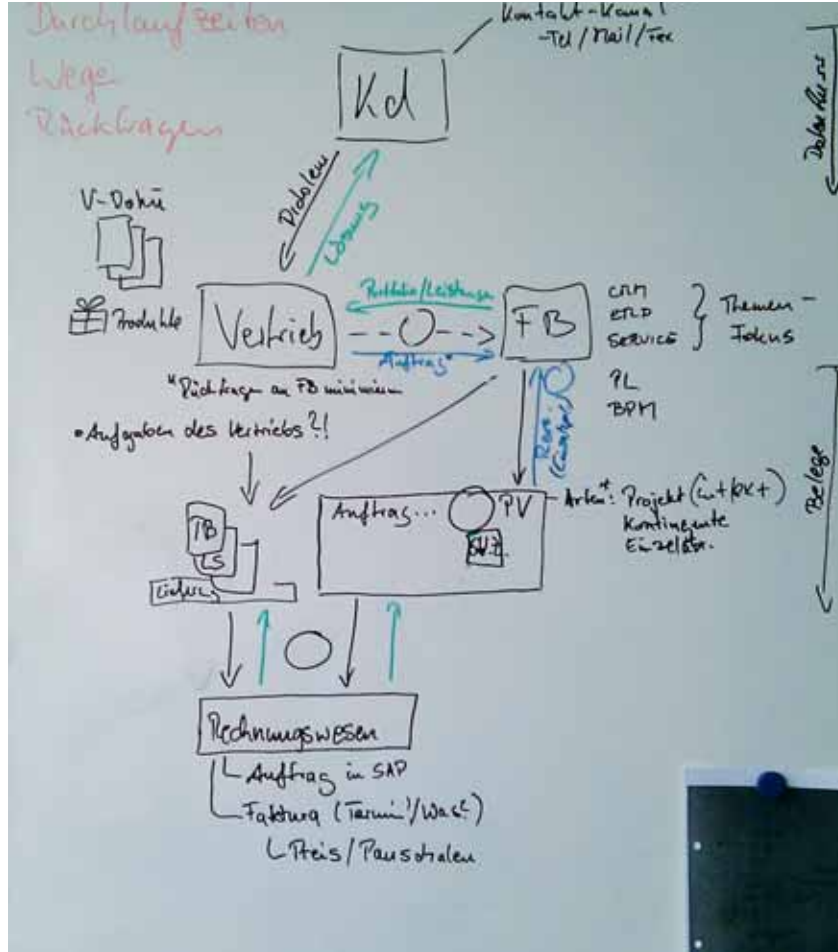 Durchlaufzeiten
Wege
Rückfragen
Kontakt-Kanal
-Tel/Mail/Fax
Kd
Lösung
V-Doku
Produkte
Vertrieb
Portfolio/Leistungen
Auftrag*
FB
CRM
ERP
SERVICE
Themen-
Fokus
PL
BPM
*Rückfragen an FB minimieren
• Aufgaben des Vertriebs?!
Belege
TB
LS
Auftrag...
PV
Arten*: Projekt (int/ext)
Kontingente
Rechnungswesen
Auftrag in SAP
Faktura (Termin!/Was?)
Preis/Pauschalen